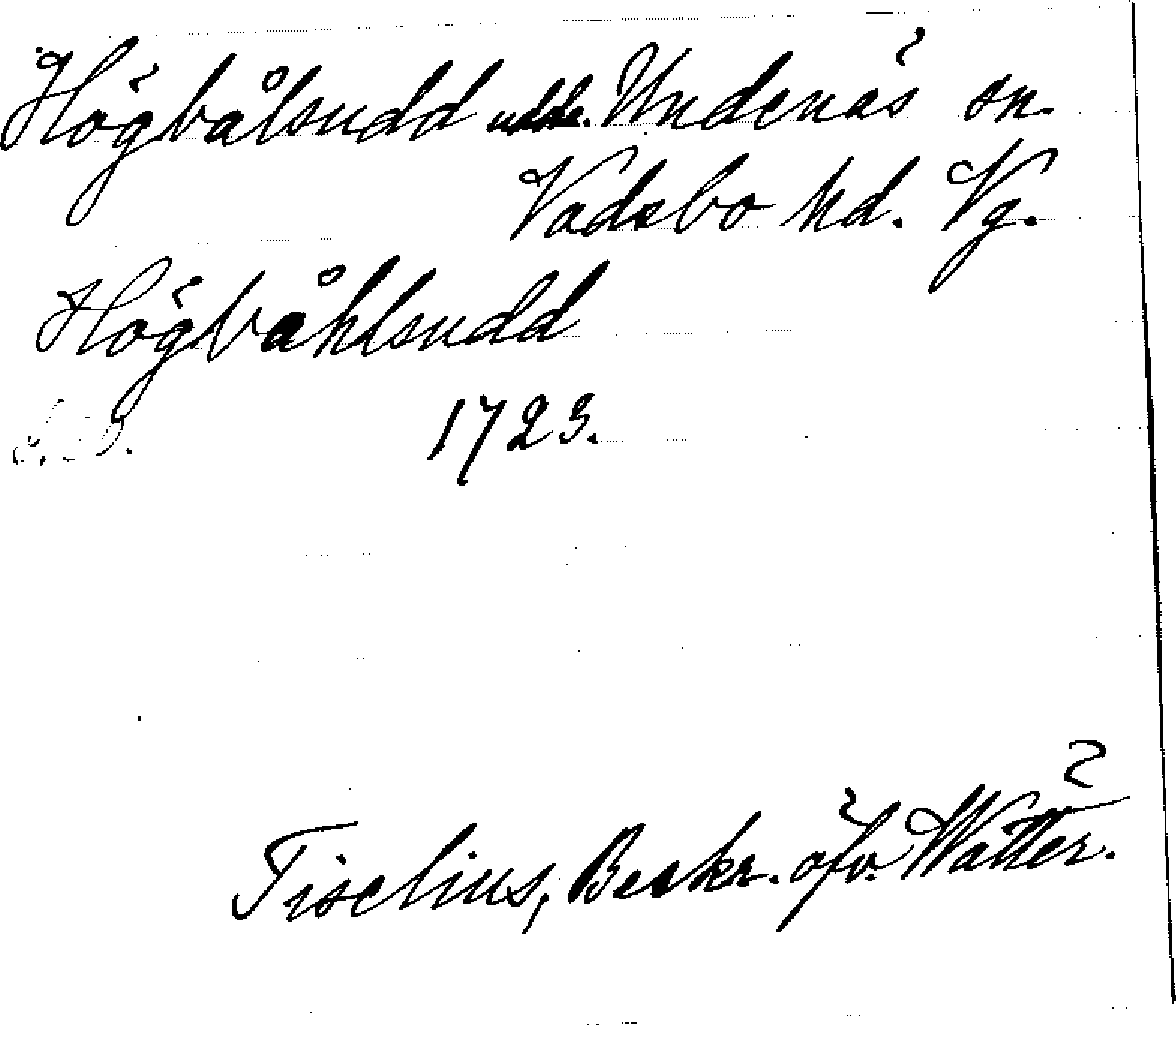 Högbålsudd udde. Undenäs sn.
Vadsbo hd. Vg.
Högbåhlsudd
1723.
Tiselius, Beskr. öfv. Wätter.